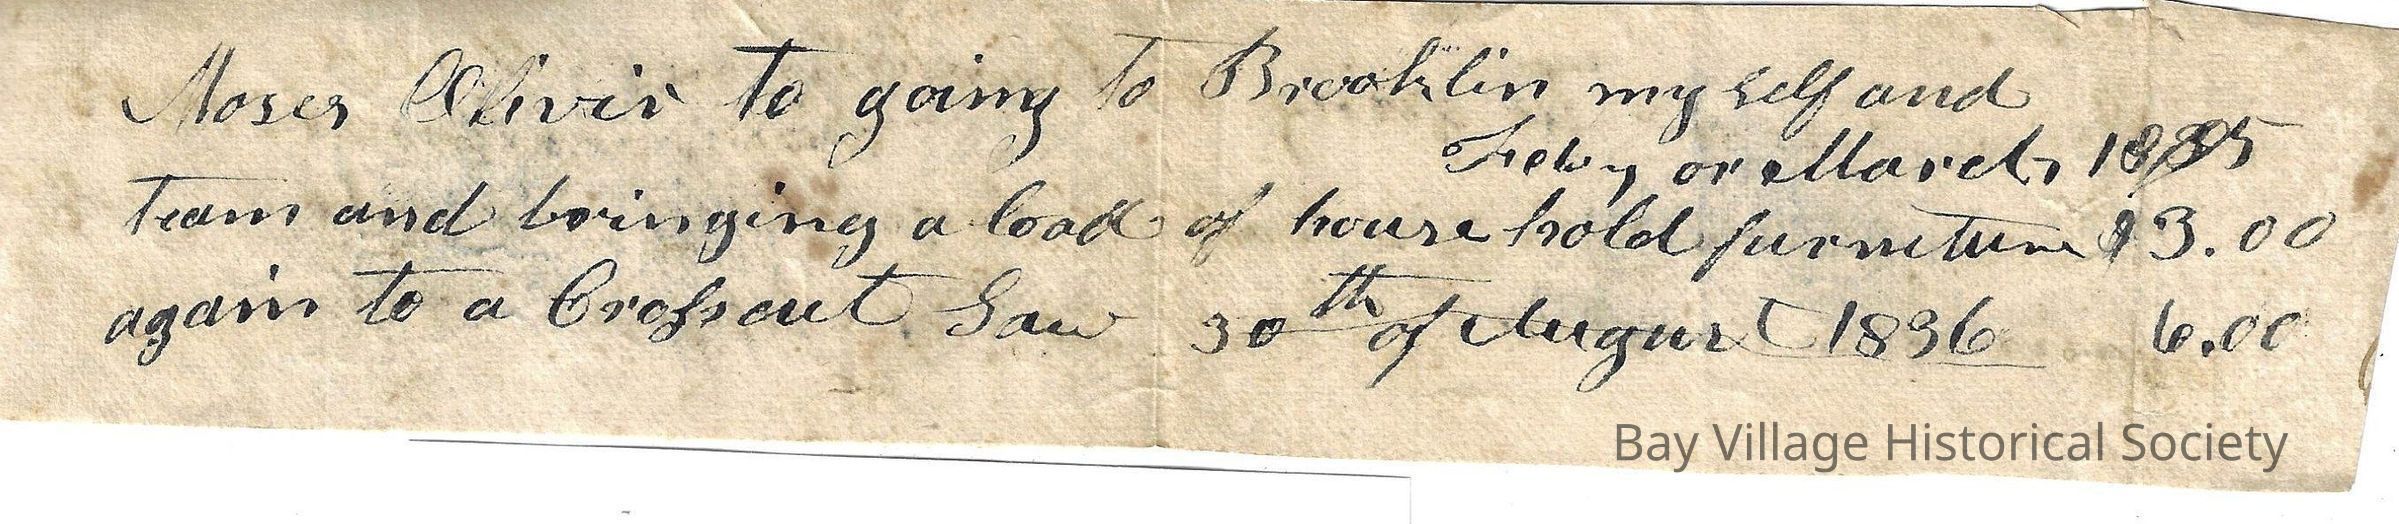 Moses Olivir to going to Brooklin my self and
Feby or March 1835
team and bringing a load of house hold furniture $3.00
again to a Crosscut Saw 30th of August 1836 6.00
Bay Village Historical Society